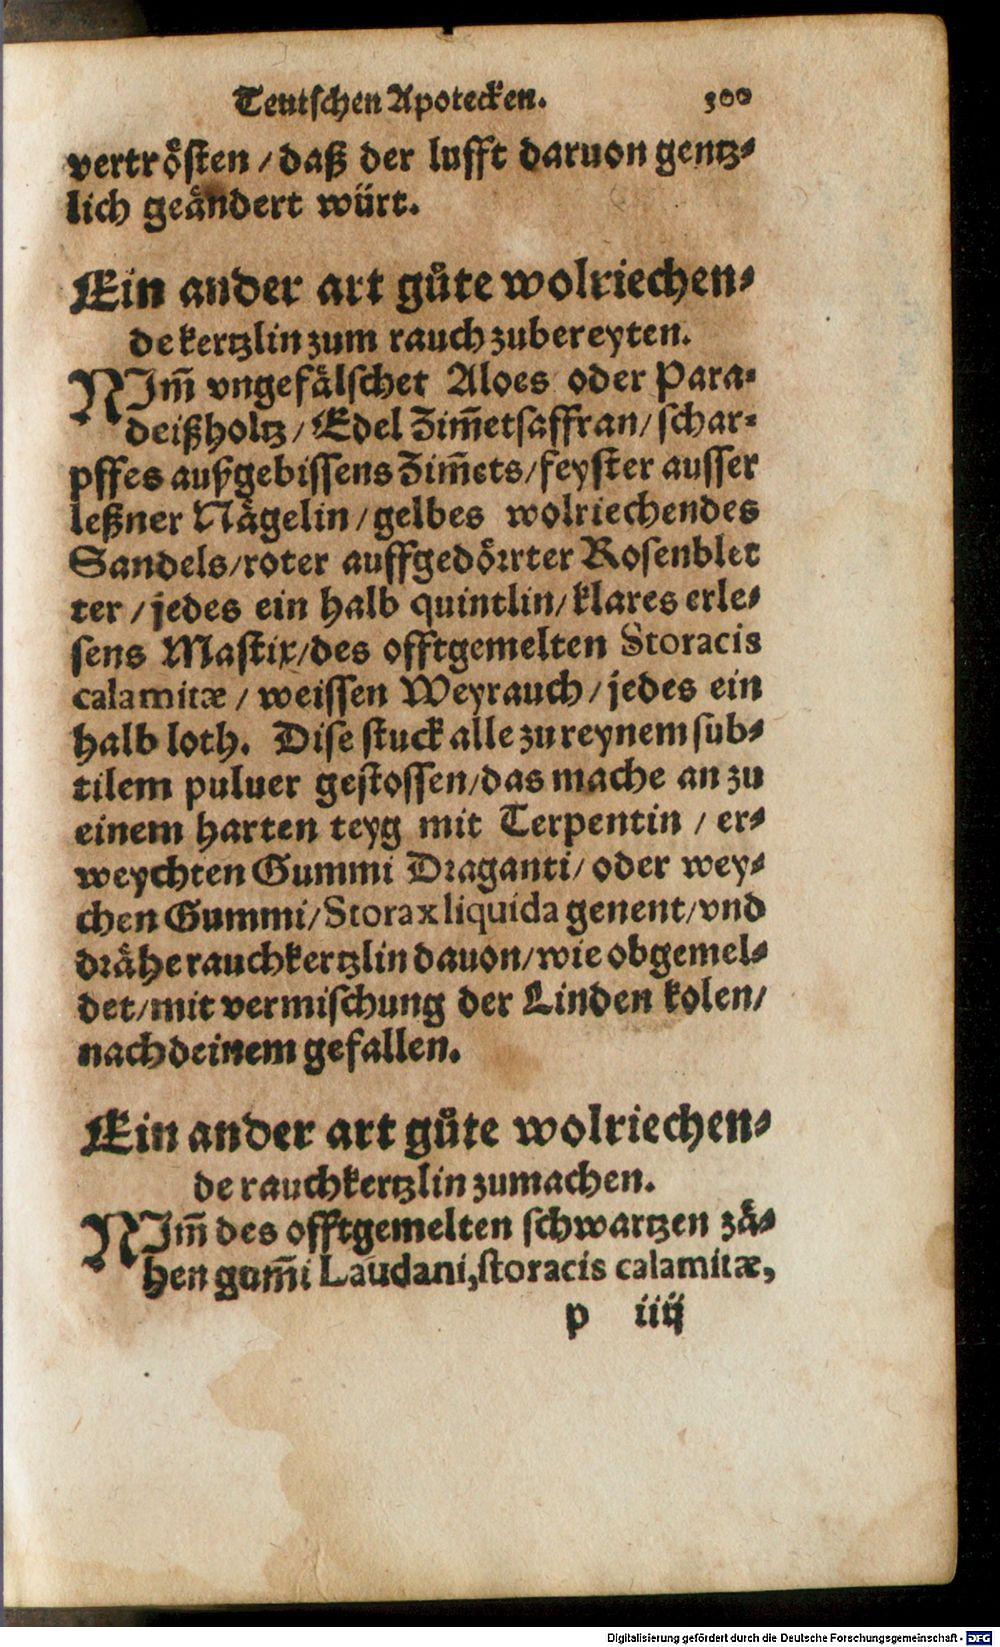 Teutschen Apotecken. 300
vertrösten / daß der lufft daruon gentz⸗
lich geändert würt.
Ein ander art gůte wolriechen⸗
de kertzlin zum rauch zubereyten.
NIm̃ vngefälschet Aloes oder Para⸗
deißholtz / Edel Zim̃etsaffran / schar⸗
pffes außgebissens Zim̃ets / feyster ausser
leßner Nägelin / gelbes wolriechendes
Sandels / roter auffgedörrter Rosenblet
ter / jedes ein halb quintlin / klares erle⸗
sens Mastix / des offtgemelten Storacis
calamitæ / weissen Weyrauch / jedes ein
halb loth. Dise stuck alle zu reynem sub⸗
tilem puluer gestossen / das mache an zu
einem harten teyg mit Terpentin / er⸗
weychten Gummi Draganti / oder wey⸗
chen Gummi / Storax liquida genent / vnd
drähe rauchkertzlin dauon / wie obgemel⸗
det / mit vermischung der Linden kolen /
nach deinem gefallen.
Ein ander art gůte wolriechen⸗
de rauchkertzlin zumachen.
NIm̃ des offtgemelten schwartzen zä⸗
hen gum̃i Laudani, storacis calamitæ,
p iiij
Digitalisierung gefördert durch die Deutsche Forschungsgemeinschaft - DFG